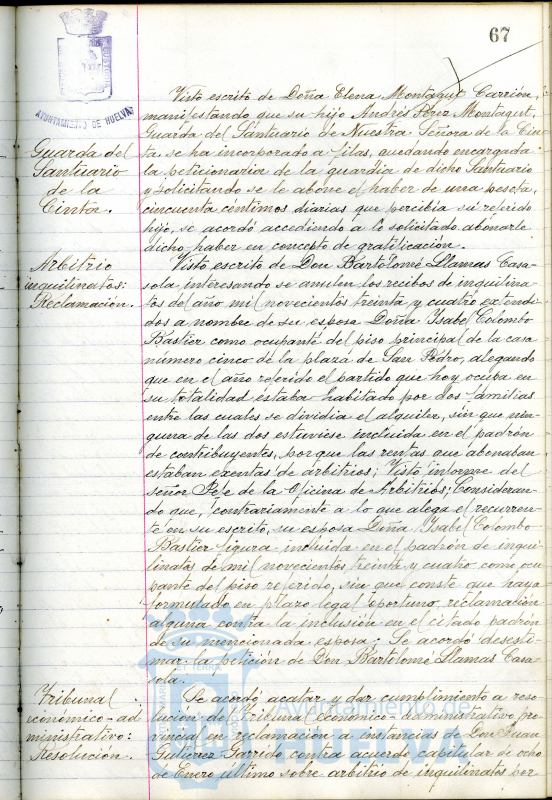 67
AYUNTAMIENTO DE HUELVA
Visto escrito de Doña Elena Montagut Carrión,
manifestando que su hijo Andrés Pérez Montagut,
Guarda del Santuario de Nuestra Señora de la Cin-
ta, se ha incorporado a filas, quedando encargada
la peticionaria de la guardia de dicho Santuario
y solicitando se le abone el haber de una peseta,
cincuenta céntimos diarias que percibia su referido
hijo, se acordó accediendo a lo solicitado abonarle
dicho haber en concepto de gratificación.
Guarda del
Santuario
de la
Cinta.
Visto escrito de Don Bartolomé Llamas Casa-
sola interesando se anulen los recibos de inquilina-
tos del año mil novecientos treinta y cuatro extendi-
dos a nombre de su esposa Doña Isabel Colombo
Bastier como ocupante del piso principal de la casa
número cinco de la plaza de San Pedro, alegando
que en el año referido el partido que hoy ocupa en
su totalidad estaba habitado por dos familias
entre las cuales se dividia el alquiler, sin que nin-
guna de las dos estuviese incluida en el padrón
de contribuyentes, porque las rentas que abonaban
estaban exentas de arbitrios; Visto informe del
señor Jefe de la Oficina de Arbitrios; Consideran-
do que, contrariamente a lo que alega el recurren-
te en su escrito, su esposa Doña Isabel Colombo
Bastier figura incluida en el padrón de inqui-
linatos de mil novecientos treinta y cuatro como ocu-
pante del piso referido, sin que conste que haya
formulado en plazo legal oportuno, reclamación
alguna contra la inclusión en el citado padrón
de su mencionada esposa; Se acordó desesti-
mar la petición de Don Bartolomé Llamas Casa-
sola.
Arbitrio
inquilinatos:
Reclamación.
Se acordó acatar y dar cumplimiento a reso-
lución del Tribunal Económico-Administrativo pro-
vincial en reclamación a instancias de Don Juan
Gutierrez Garrido contra acuerdo capitular de ocho
de Enero último sobre arbitrio de inquilinatos por
Tribunal
económico-ad
ministrativo:
Resolución.
Ayuntamiento de
HUELVA